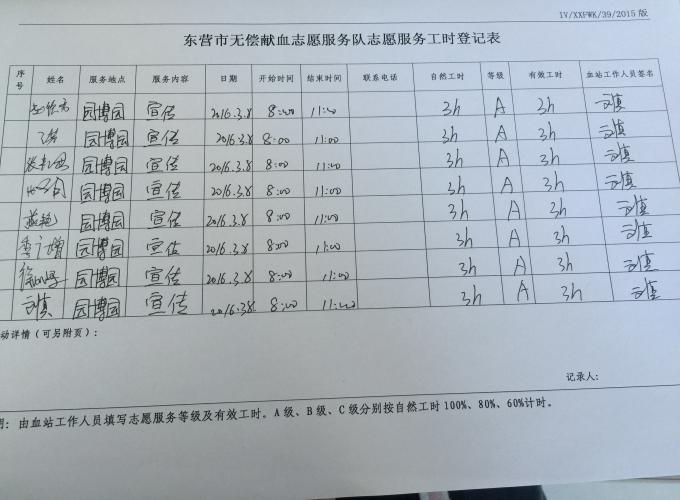 IV/XXFWK/39/2015 版
东营市无偿献血志愿服务队志愿服务工时登记表
序号 姓名 服务地点 服务内容 日期 开始时间 结束时间 联系电话 自然工时 等级 有效工时 血站工作人员签名
园博园 宣传 2016.3.8 8:00 11:00 3h A 3h 刘慎
园博园 宣传 2016.3.8 8:00 11:00 3h A 3h 刘慎
园博园 宣传 2016.3.8 8:00 11:00 3h A 3h 刘慎
园博园 宣传 2016.3.8 8:00 11:00 3h A 3h 刘慎
园博园 宣传 2016.3.8 8:00 11:00 3h A 3h 刘慎
园博园 宣传 2016.3.8 8:00 11:00 3h A 3h 刘慎
园博园 宣传 2016.3.8 8:00 11:00 3h A 3h 刘慎
刘慎 园博园 宣传 2016.3.8 8:00 11:00 3h A 3h 刘慎
动详情（可另附页）：
记录人：
明：由血站工作人员填写志愿服务等级及有效工时。A 级、B 级、C 级分别按自然工时 100%、80%、60%计时。